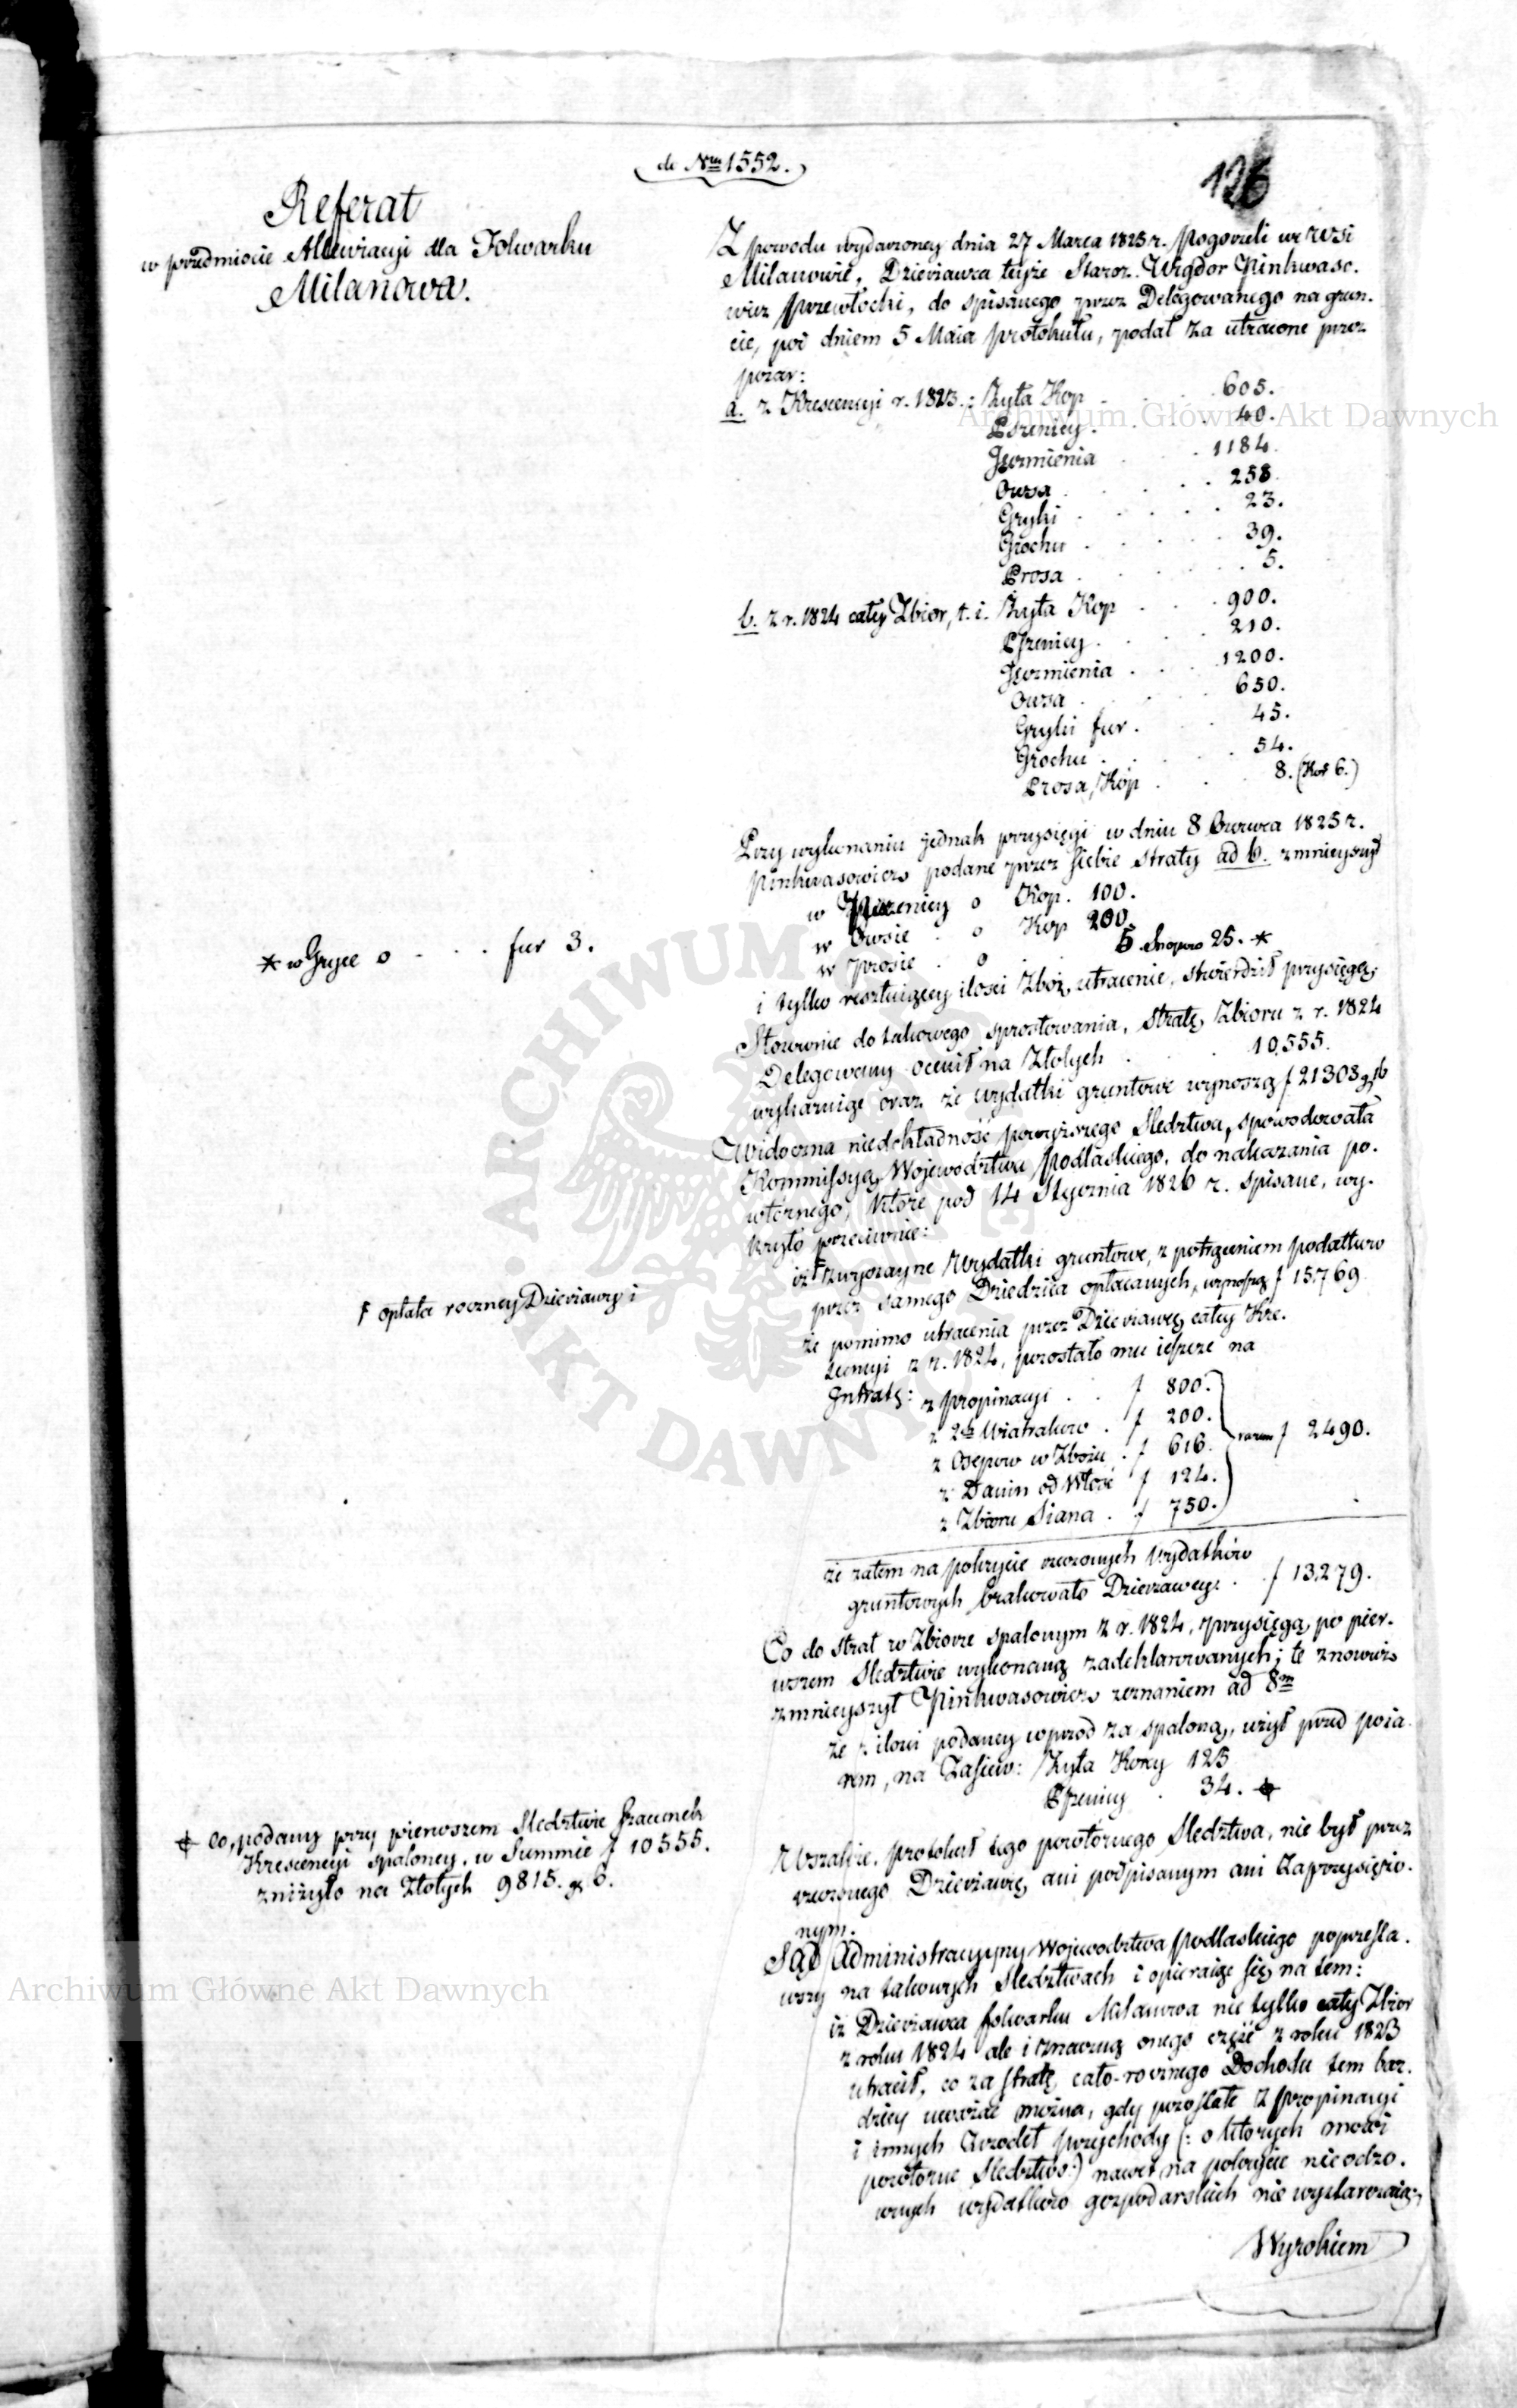 do Nru 1552.
126
Referat
w przedmiocie Allewiacyi dla Folwarku
Milanowa.
Z powodu wydarzoney dnia 27 Marca 1825 r. Pogorzeli we Wsi
Milanowie, Dzierżawca teyże Staroz. Wigdor Pinkwaso-
wicz Przewłocki, do spisanego przez Delegowanego na grun-
cie, pod dniem 5 Maia protokułu, podał za utracone przez
pożar:
a. z Krescencyi r. 1823.: Żyta Kop . . . 605.
Pszenicy . . . 40.
Jęczmienia . . . 1184.
Owsa . . . 258.
Gryki . . . 23.
Grochu . . . 39.
Prosa . . . 5.
b. z r. 1824 cały Zbior, t. i. Żyta Kop . . . 900.
Pszenicy . . . 210.
Jęczmienia . . . 1200.
Owsa . . . 650.
Gryki fur . . . 45.
Grochu . . . 54.
Prosa, Kop . . . 8. (Kop 6.)
Przy wykonaniu jednak przysięgi w dniu 8 Czerwca 1825 r.
Pinkwasowicz podane przez siebie straty ad b. zmnieyszył
w Pszenicy o Kop. 100.
w Owsie . o Kop 200.
w Prosie . o . . 5. Snopow 25. *
* w Gryce o . . . fur 3.
i tylko resztuiącey ilosci Zboż, utracenie, stwierdził przysięgą.
Stosownie do takowego sprostowania, stratę Zbioru z r. 1824
Delegowany ocenił na Złotych . . . 10,555.
wykazuiąc oraz że wydatki gruntowe wynoszą f 21308 g 16
Widoczna niedokładność powyższego Sledztwa, spowodowała
Kommissyą Wojewodztwa Podlaskiego, do nakazania po-
wtornego, które pod 14 Stycznia 1826 r. spisane, wy-
kryło przeciwnie:
iż zwyczayne Wydatki gruntowe, z potrąceniem podatkow
przez samego Dziedzica opłacanych, wynoszą f 15,769.
ƒ opłata roczney Dzierżawy i
że pomimo utracenia przez Dzierżawcę całey Kre-
scencyi z r. 1824, pozostało mu ieszcze na
Intratę: z propinacyi . . f 800.
z 2ch Wiatrakow . f 200.
z Osepow w Zbożu . f 616. razem f 2490.
z Danin od Włość f 124.
z Zbioru Siana . f 750.
że zatem na pokrycie rzeczonych Wydatków
gruntowych brakowało Dzierżawcy: . . f 13,279.
Co do strat w Zbiorze spalonym z r. 1824, przysięgą po pier-
wszem Sledztwie wykonaną zadeklarowanych; te znowuż
zmnieyszył Pinkwasowicz zeznaniem ad 8m
że z ilosci podaney wprzod za spaloną, użył przed poża-
rem, na Zasiew: Żyta Korcy 125
Pszenicy . 34.
Co, podany przy pierwszem Sledztwie Szacunek
Krescencyi spaloney, w Summie f 10555.
zniżyło na Złotych 9815. g 6.
Wszakże, protokuł tego powtornego Sledztwa, nie był przez
rzeczonego Dzierżawcę ani podpisanym ani Zaprzysiężo-
nym.
Sąd Administracyjny Wojewodztwa Podlaskiego poprzesta-
wszy na takowych Sledztwach i opieraiąc się na tem:
iż Dzierżawca folwarku Milanowa nie tylko cały Zbior
z roku 1824 ale i znaczną onego część z roku 1823
utracił, co za stratę, cało-rocznego Dochodu tem bar-
dziey uważać można, gdy pozostałe z propinacyi
i innych Zrodeł przychody (: o których mowi
powtorne Sledztwo:) nawet na pokrycie nieodzo-
wnych wydatkow gospodarskich nie wystarczaią;
Wyrokiem
Archiwum Główne Akt Dawnych
Archiwum Główne Akt Dawnych